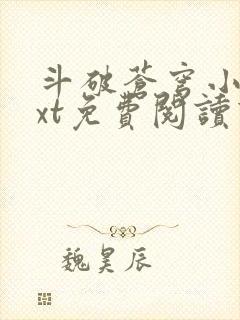 斗破蒼穹小
xt免費閱讀
魏昊辰